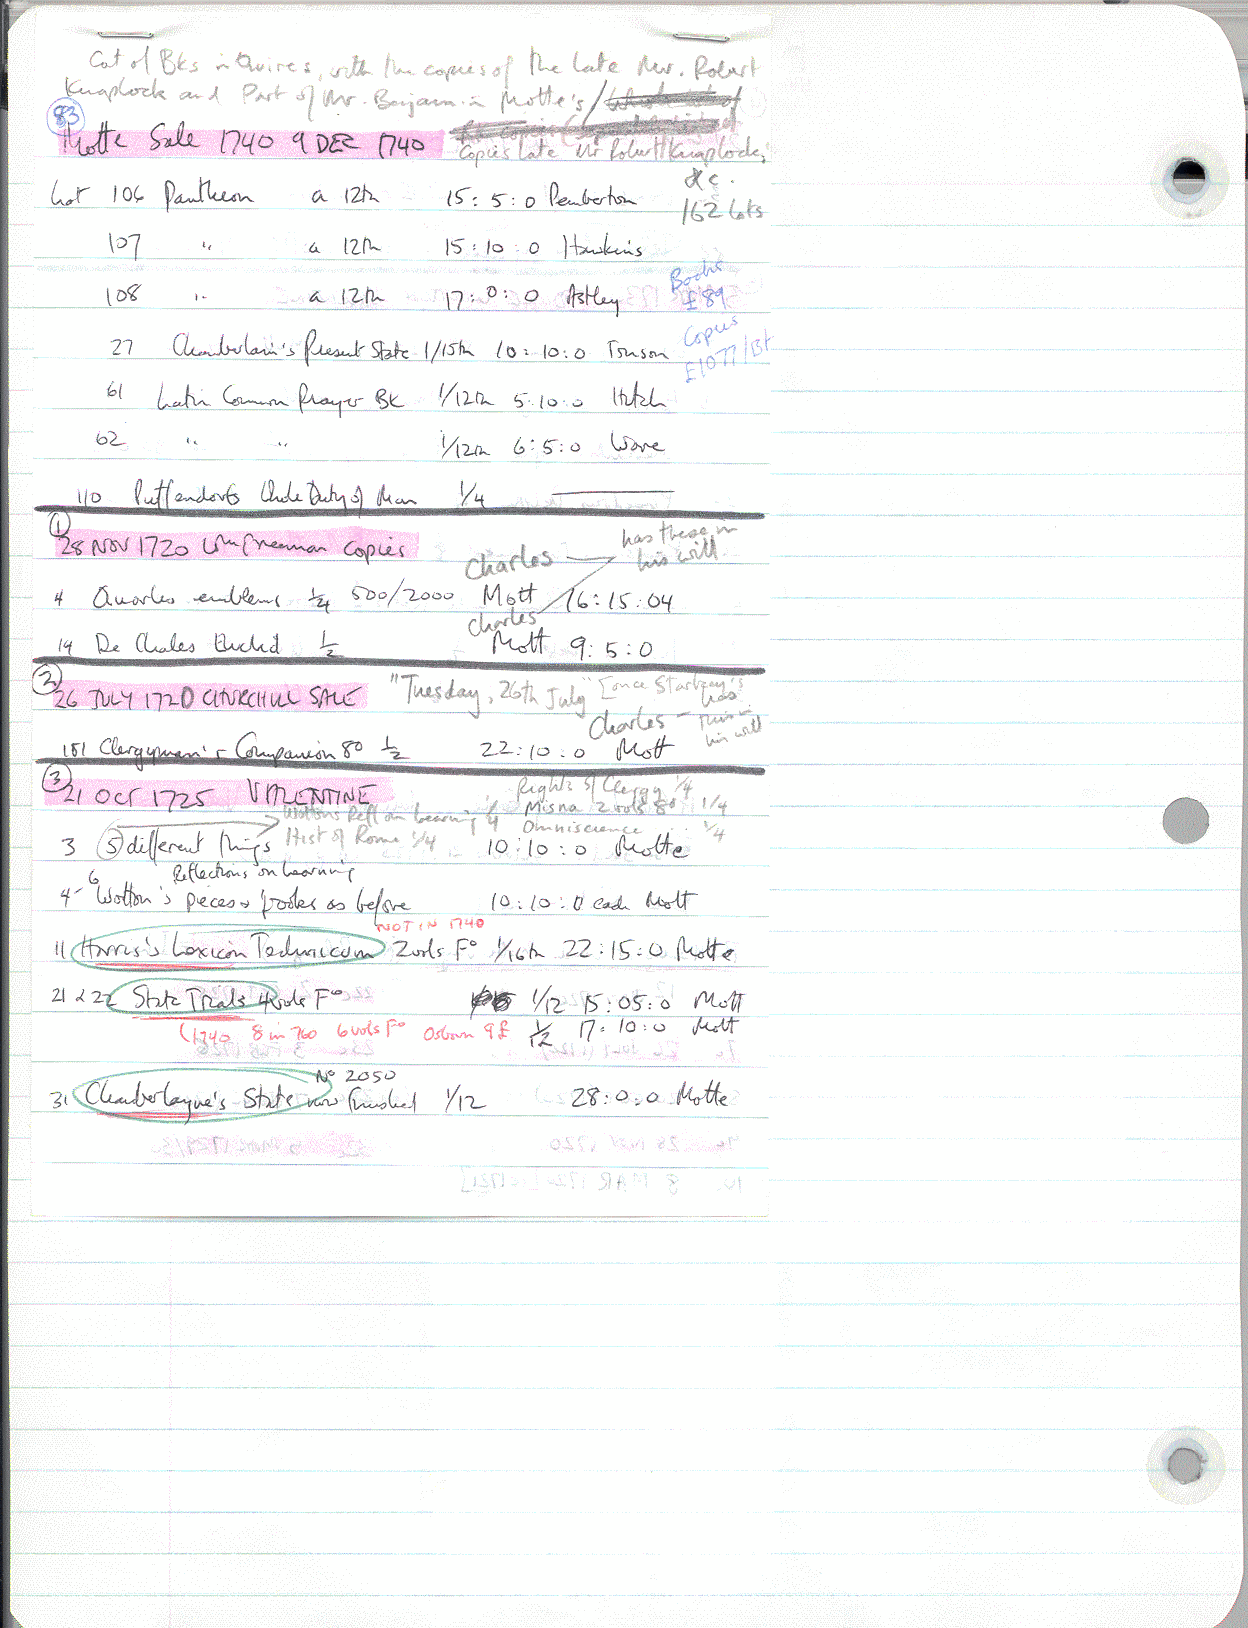 Cat of Bks in Quires, with the copies of the late Mr. Robert
Knaplock and Part of Mr. Benjamin Motte's /
83
Motte Sale 1740 9 DEC 1740
Copies late Mr Robert Knaplock,
&c.
162 lots
Lot 106 Pantheon a 12th 15:5:0 Pemberton
107 " a 12th 15:10:0 Hawkins
108 " a 12th 17:0:0 Astley
Books
£89
27 Chamberlain's Present State 1/15th 10:10:0 Tonson
Copies
£1077/Bt
61 Latin Common Prayer Bk 1/12th 5:10:0 Hitch
62 " " 1/12th 6:5:0 Ware
110 Puffendorfs Whole Duty of Man 1/4 ———
1
28 NOV 1720 Wm Freeman copies
Charles — has these in
his will
4 Quarles emblems 1/4 500/2000 Mott 16:15:04
Charles
14 De Chales Euclid 1/2 Mott 9:5:0
2
26 JULY 1720 CHURCHILL SALE "Tuesday, 26th July" [once Starkey's
Charles — has
this in
his will
181 Clergyman's Companion 80 1/2 22:10:0 Mott
3
21 OCT 1725 VALENTINE
Rights of Clergy 1/4
Wottons Refl on Learning 1/4 Misna 2 vols 8o 1/4
Hist of Rome 1/4 Omniscience 1/4
3 5 different things 10:10:0 Motte
Reflections on Learning
4-6 Wotton's pieces & books as before 10:10:0 each Mott
NOT IN 1740
11 Harris's Lexicon Technicum 2 vols Fo 1/16th 22:15:0 Motte
21 & 22 State Trials 4 vols Fo 1/12 15:05:0 Mott
(1740 8 in 760 6 vols Fo Osborn 9£ 1/12 17:10:0 Mott
No 2050
31 Chamberlayne's State now finished 1/12 28:0:0 Motte